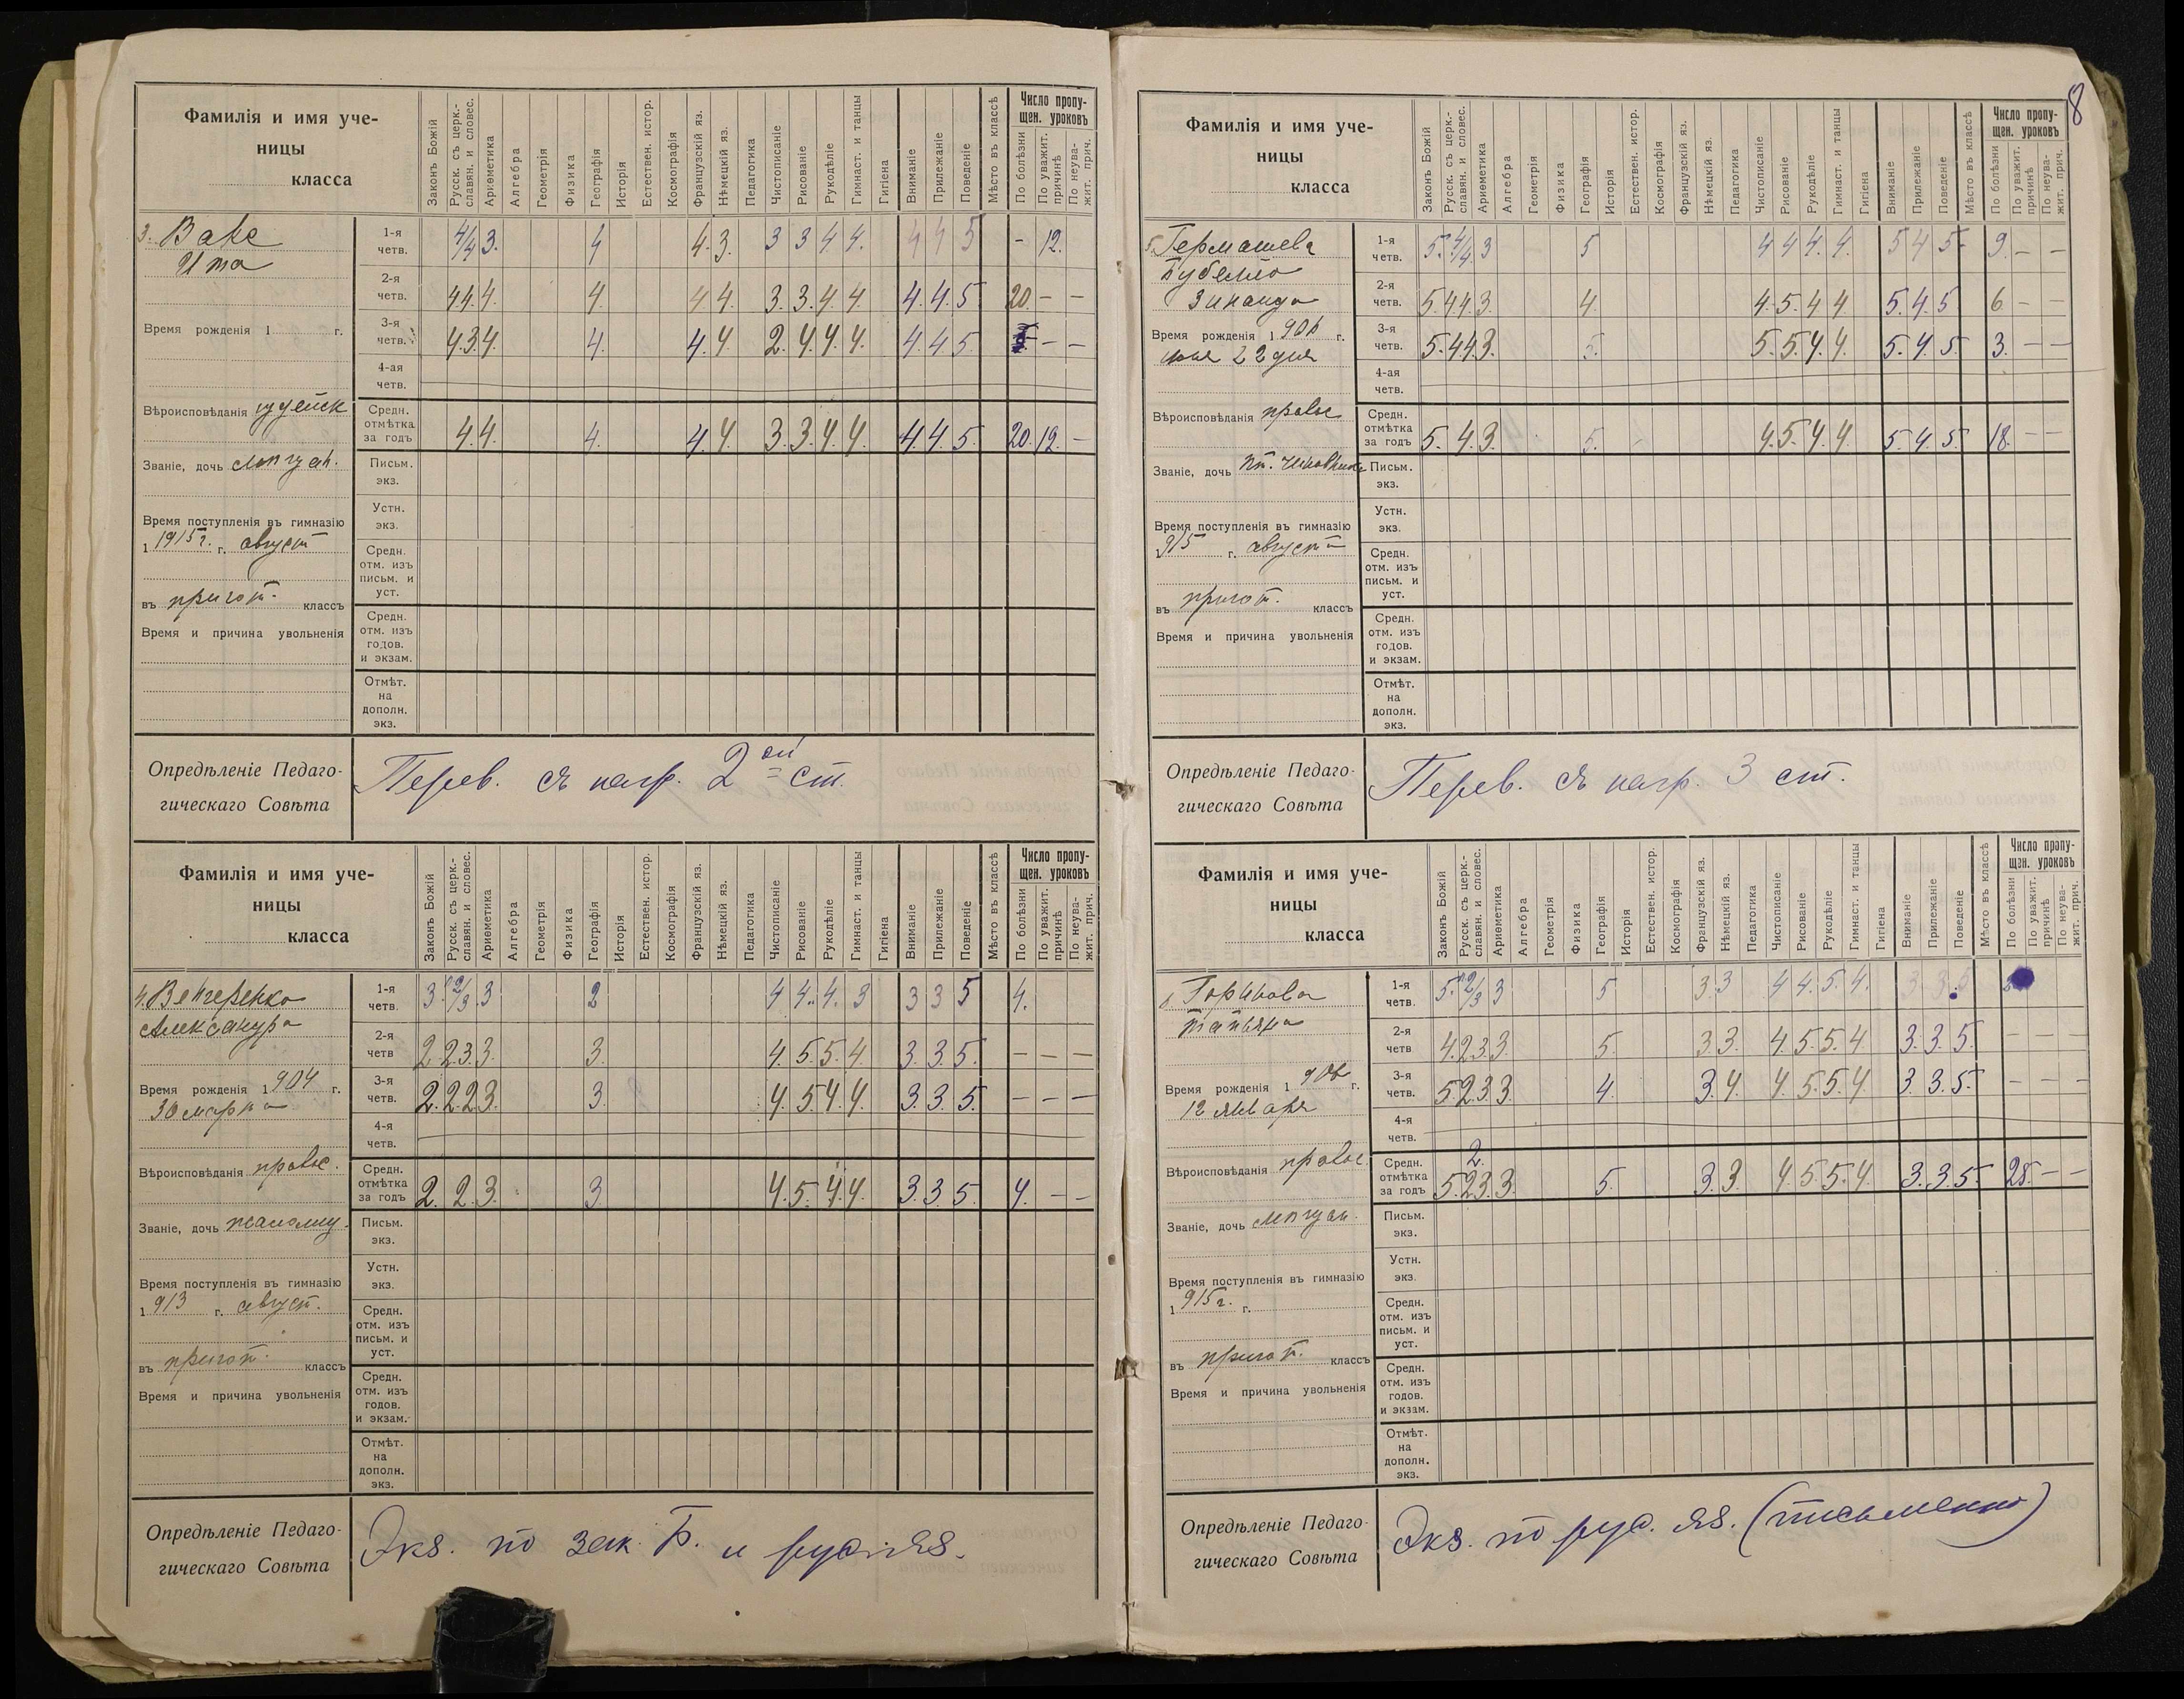 8
Фамилія и имя уче-
ницы
класса
Законъ Божій
Русск. съ церк.-
славян. и словес.
Ариѳметика
Алгебра
Геометрія
Физика
Географія
Исторія
Естествен. истор.
Космографія
Французскій яз.
Нѣмецкій яз.
Педагогика
Чистописаніе
Рисованіе
Рукодѣліе
Гимнаст. и танцы
Гигіена
Вниманіе
Прилежаніе
Поведеніе
Мѣсто въ классѣ
Число пропу-
щен. уроковъ
По болѣзни
По уважит.
причинѣ
По неува-
жит. прич.
3. Вакс
Ита
Время рожденія 1 г.
Вѣроисповѣданія іудейск
Званіе, дочь
Время поступленія въ гимназію
1 1915 г. г. август
въ пригот. классъ
Время и причина увольненія
1-я четв. 4/4 3. 4 4. 3. 3 3 4 4. 4 4 5 - 12.
2-я четв. 4 4. 4. 4. 4 4. 3. 3. 4. 4 4. 4. 5 20. - -
3-я четв. 4. 3. 4. 4. 4. 4 2. 4. 4. 4. 4. 4. 5. - -
4-ая четв.
Средн. отмѣтка за годъ 4. 4. 4. 4. 4 3. 3. 4. 4. 4. 4. 5 20. 12. -
Письм. экз.
Устн. экз.
Средн. отм. изъ письм. и уст.
Средн. отм. изъ годов. и экзам.
Отмѣт. на дополн. экз.
Опредѣленіе Педаго-
гическаго Совѣта
Перев. съ нагр. 2ой ст.
Фамилія и имя уче-
ницы
класса
Законъ Божій
Русск. съ церк.-
славян. и словес.
Ариѳметика
Алгебра
Геометрія
Физика
Географія
Исторія
Естествен. истор.
Космографія
Французскій яз.
Нѣмецкій яз.
Педагогика
Чистописаніе
Рисованіе
Рукодѣліе
Гимнаст. и танцы
Гигіена
Вниманіе
Прилежаніе
Поведеніе
Мѣсто въ классѣ
Число пропу-
щен. уроковъ
По болѣзни
По уважит.
причинѣ
По неува-
жит. прич.
4. Венгеренко
Александра
Время рожденія 1904 г.
30 марта
Вѣроисповѣданія правос.
Званіе, дочь
Время поступленія въ гимназію
1 913 г. август.
въ пригот. классъ
Время и причина увольненія
1-я четв. 3. 2/3 3 2 4 4. 4. 3 3 3 5 4.
2-я четв 2 2. 3. 3. 3. 4. 5. 5. 4 3. 3. 5. - - -
3-я четв. 2. 2. 2 3. 3. 4. 5 4. 4. 3. 3. 5. - - -
4-я четв.
Средн. отмѣтка за годъ 2. 2. 3. 3. 4. 5. 4. 4. 3. 3. 5. 4. - -
Письм. экз.
Устн. экз.
Средн. отм. изъ письм. и уст.
Средн. отм. изъ годов. и экзам.
Отмѣт. на дополн. экз.
Опредѣленіе Педаго-
гическаго Совѣта
Экз. по зак. Б. и рус. яз.
Фамилія и имя уче-
ницы
класса
Законъ Божій
Русск. съ церк.-
славян. и словес.
Ариѳметика
Алгебра
Геометрія
Физика
Географія
Исторія
Естествен. истор.
Космографія
Французскій яз.
Нѣмецкій яз.
Педагогика
Чистописаніе
Рисованіе
Рукодѣліе
Гимнаст. и танцы
Гигіена
Вниманіе
Прилежаніе
Поведеніе
Мѣсто въ классѣ
Число пропу-
щен. уроковъ
По болѣзни
По уважит.
причинѣ
По неува-
жит. прич.
5. Гермашева
Зинаида
Время рожденія 1 г.
22 дня
Вѣроисповѣданія правос
Званіе, дочь чиновника
Время поступленія въ гимназію
915 г. августа
въ пригот. классъ
Время и причина увольненія
1-я четв. 5. 4/4 3 5 4 4 4. 4. 5 4 5. 9. - -
2-я четв. 5 4 4 3. 4. 4. 5. 4 4 5. 4. 5 6 - -
3-я четв. 5. 4 4 3. 5. 5. 5. 4. 4. 5. 4. 5. 3. - -
4-ая четв.
Средн. отмѣтка за годъ 5. 4. 3. 5. 4. 5. 4. 4 5. 4. 5. 18. - -
Письм. экз.
Устн. экз.
Средн. отм. изъ письм. и уст.
Средн. отм. изъ годов. и экзам.
Отмѣт. на дополн. экз.
Опредѣленіе Педаго-
гическаго Совѣта
Перев. съ нагр. 3 ст.
Фамилія и имя уче-
ницы
класса
Законъ Божій
Русск. съ церк.-
славян. и словес.
Ариѳметика
Алгебра
Геометрія
Физика
Географія
Исторія
Естествен. истор.
Космографія
Французскій яз.
Нѣмецкій яз.
Педагогика
Чистописаніе
Рисованіе
Рукодѣліе
Гимнаст. и танцы
Гигіена
Вниманіе
Прилежаніе
Поведеніе
Мѣсто въ классѣ
Число пропу-
щен. уроковъ
По болѣзни
По уважит.
причинѣ
По неува-
жит. прич.
6. Горикова
Татьяна
Время рожденія 1906 г.
12 января
Вѣроисповѣданія правос
Званіе, дочь
Время поступленія въ гимназію
1 915 г. г.
въ пригот. классъ
Время и причина увольненія
1-я четв. 5. 2/3 3 5 3 3 4 4. 5. 4. 3 3.
2-я четв 4. 2. 3 3. 5. 3 3. 4. 5. 5. 4. 3. 3. 5. - - -
3-я четв. 5 2 3 3. 4. 3 4. 4. 5. 5. 4. 3 3. 5. - - -
4-я четв.
2.
Средн. отмѣтка за годъ 5. 2 3. 3. 5. 3. 3. 4 5. 5. 4. 3. 3. 5. 28. - -
Письм. экз.
Устн. экз.
Средн. отм. изъ письм. и уст.
Средн. отм. изъ годов. и экзам.
Отмѣт. на дополн. экз.
Опредѣленіе Педаго-
гическаго Совѣта
Экз. по рус. яз. (письменно)